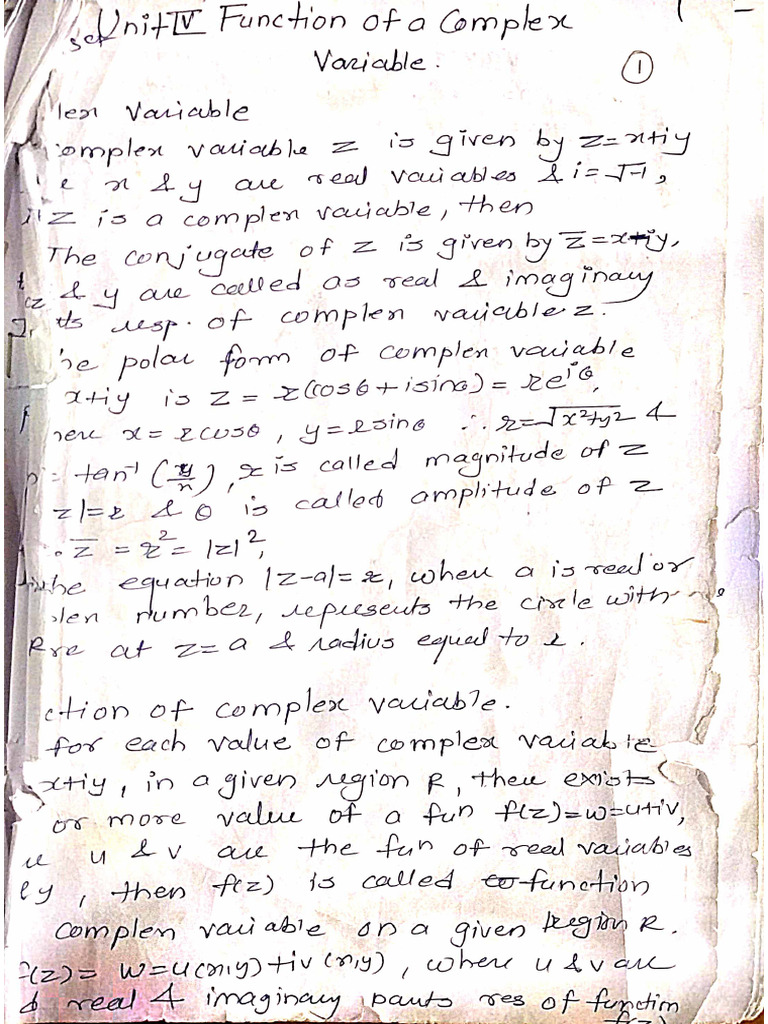 Unit IV Function of a Complex
Variable.
1
lex Variable
omplex variable z is given by z=x+iy
e x & y are real variables & i=√-1,
z is a complex variable, then
The conjugate of z is given by z̅=x-iy,
& y are called as real & imaginary
ts resp. of complex variable z.
he polar form of complex variable
x+iy is z = r(cosθ+isinθ)=re^iθ,
here x=rcosθ, y=rsinθ ∴ r=√x²+y² &
= tan⁻¹(y/x), r is called magnitude of z
z|=r & θ is called amplitude of z
. z̅ = r² = |z|²,
the equation |z-a|=r, when a is real or
lex number, represents the circle with
re at z=a & radius equal to r.
ction of complex variable.
for each value of complex variable
x+iy, in a given region R, there exists
or more value of a fun f(z)=w=u+iv,
u & v are the fun of real variables
& y, then f(z) is called function
complex variable on a given Region R.
f(z)= w=u(x,y)+iv(x,y), where u & v are
real & imaginary parts res of function
f(z)